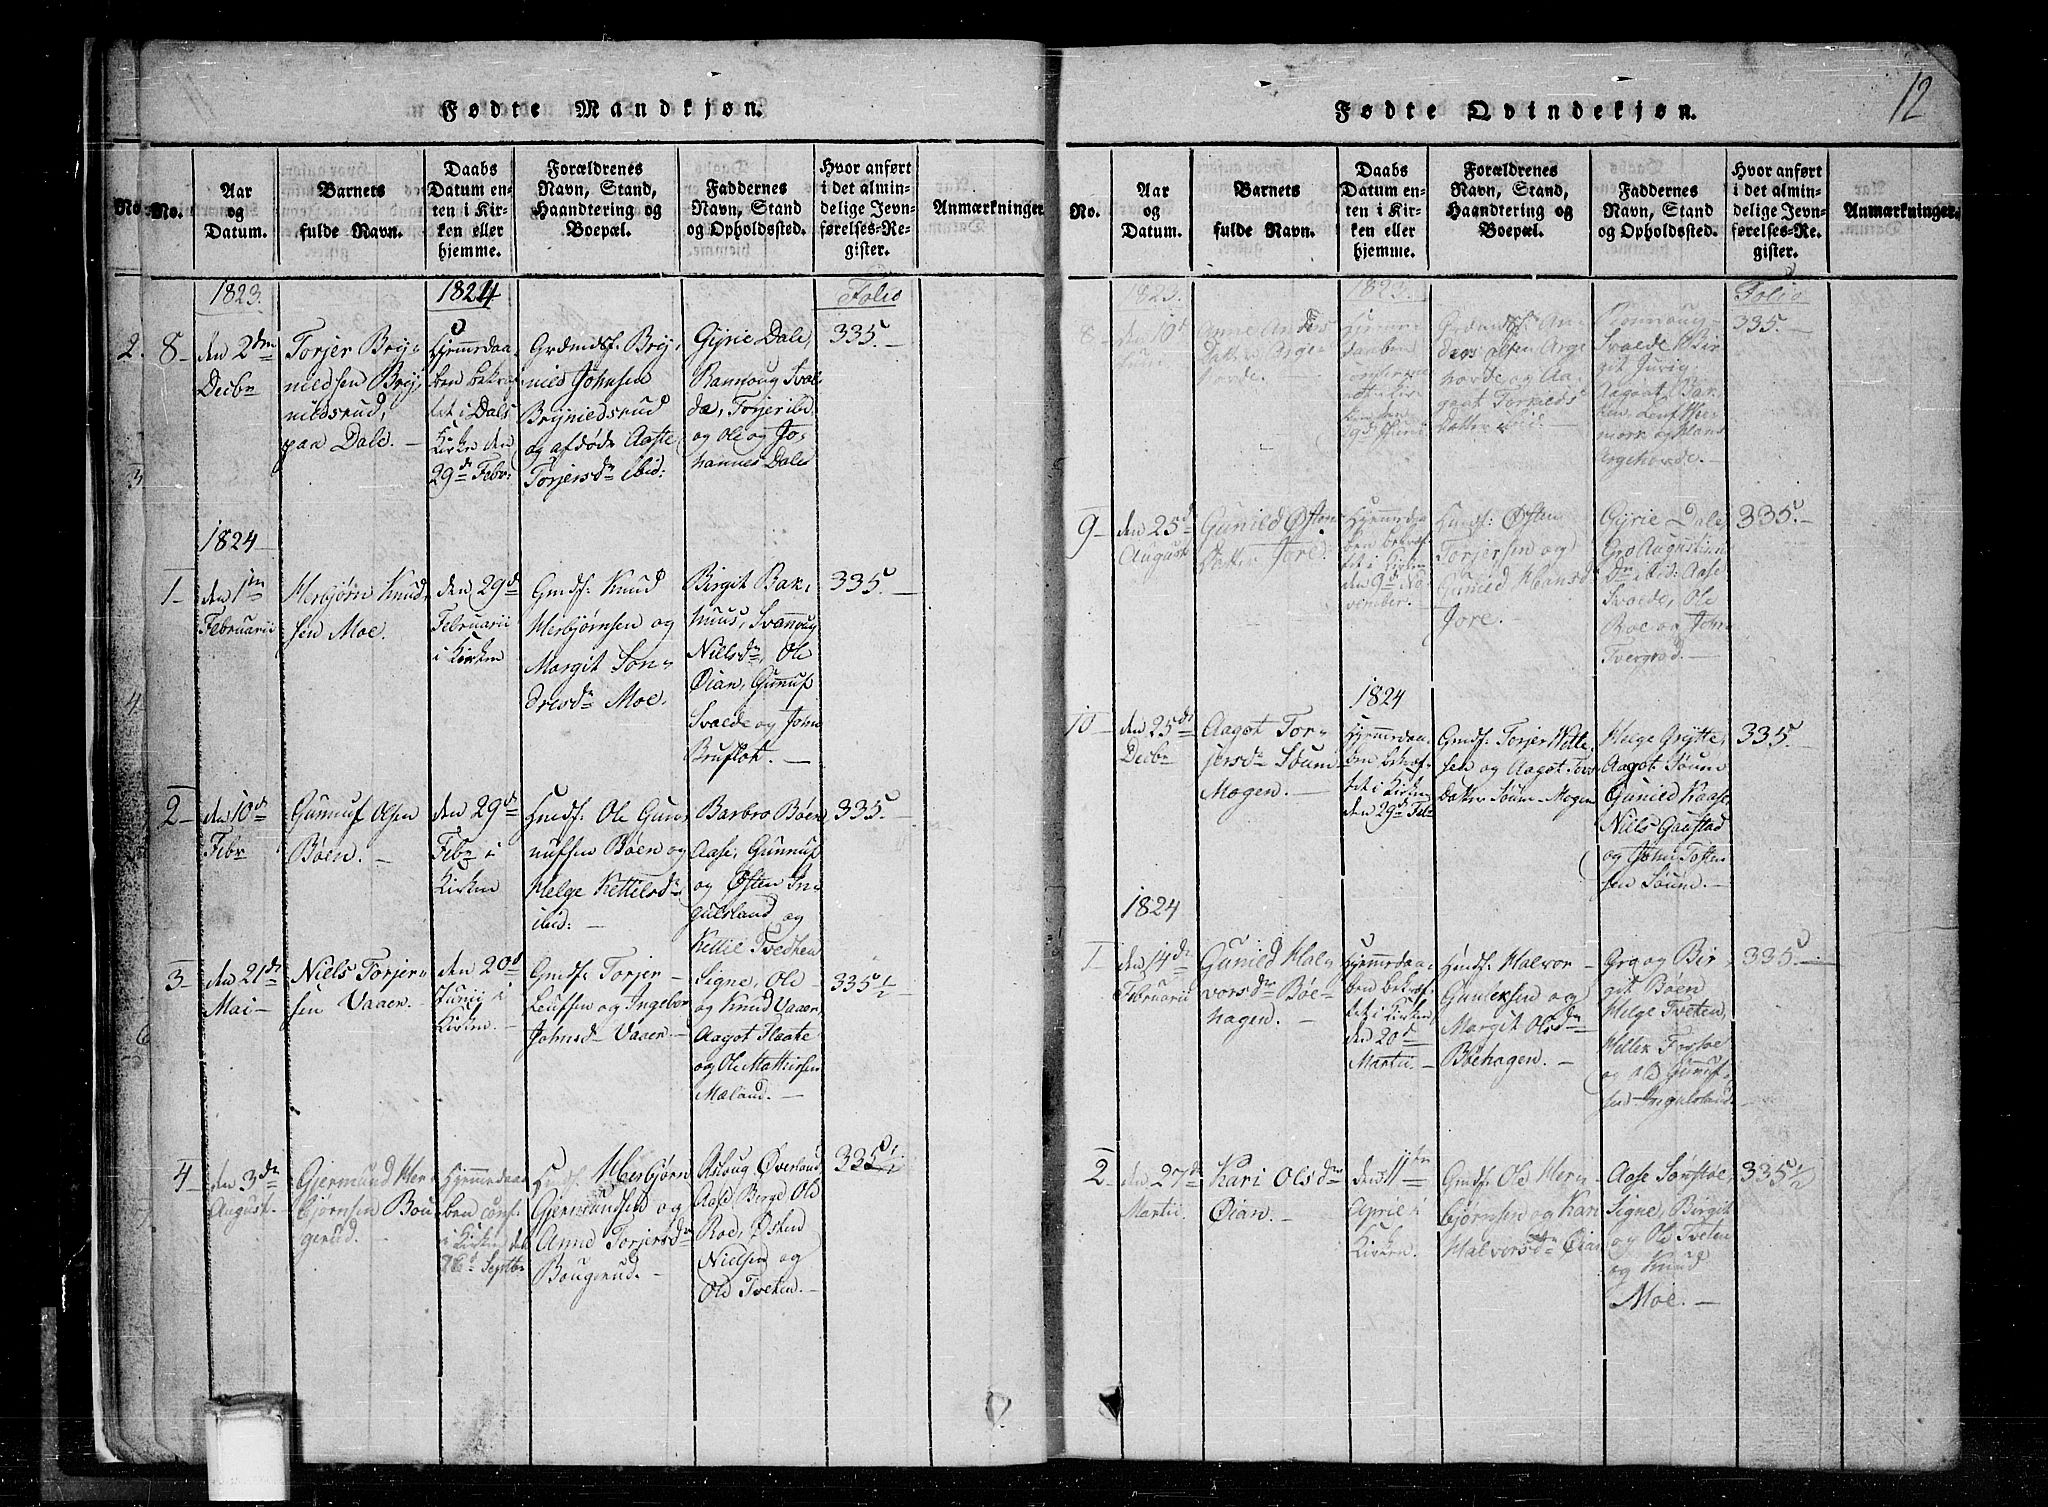 12
Fødte Mandkjøn.
No.
No.
Aar
og
Datum.
Barnets
fulde Navn.
Daabs
Datum en-
ten i Kir-
ken eller
hjemme.
Forældrenes
Navn, Stand,
Haandtering og
Boepæl.
Faddernes
Navn, Stand
og Opholdssted.
Hvor anført
i det almin-
delige Jevn-
førelses-Re-
gister.
Anmærkninger
1823.
1824
Folio
2.
8
den 2den
Decbr
Torjer Bry-
nildsen Bry-
nildsrud,
paa Dale.
Hjemmedaa-
ben bekræf-
tet i Dals
Kirke den
29de Febr:
Grdmdsf. Bry-
nild Johnsen
Brynildsrud
og afdøde Aaste
Torjersdr ibid:
Gyrie Dale,
Rannoug Sval-
de, Torjer ibd.
og Ole og Jo-
hannes Dale
335.
3
1824
1
den 1ste
Februarii
Herbjørn Knud-
sen Moe.
den 29de
Februarii
i Kirken
Gmdsf: Knud
Herbjørnsen og
Margit Son-
dresdr Moe.
Birgit Bak-
huus, Svannoug
Nielsdr, Ole
Øian, Gunuf
Svalde og John
Bruflot.
335.
4
2
den 10de
Febr
Gunnuf Olsen
Bøen.
den 29de
Febr i
Kirken
Hmdsf. Ole Gun-
nufsen Bøen og
Helge Kettilsdr
ibid:
Barbro Bøen
Aase, Gunnuf
og Østen In-
gulsland og
Kettil Tvedten
335.
3
den 21de
Mai
Niels Torjer-
sen Vaaen.
den 20de
Junii i
Kirken.
Gmdsf. Torjer
Leufsen og Ingebor
Johnsd Vaaen
Signe, Ole
og Knud Vaaen
Aagot Flaate
og Ole Mathisen
Mæland.
335 1/2
6
4
den 3de
August.
Gjermund Her-
bjørnsen Bou-
gerud.
Hjemmedaa-
ben conf.
i Kirken den
26de Septbr
Hmdsf. Herbjørn
Gjermundsen og
Anne Torjersdr
Bougerud.
Asloug Øverland
Aase Berge, Ole
Roe, Østen
Nielsen og
Ole Tveten.
335 1/2
Fødte Qvindekjøn.
No.
Aar
og
Datum.
Barnets
fulde Navn.
Daabs
Datum en-
ten i Kir-
ken eller
hjemme.
Forældrenes
Navn, Stand,
Haandtering og
Boepæl.
Faddernes
Navn, Stand
og Opholdssted.
Hvor anført
i det almin-
delige Jevn-
førelses-Re-
gister.
Anmærkninger.
1823.
1823.
Folio
8
den 10de
Anne Anders
Datter Arge-
hovde.
Hjemme-
daaben
Aa-
gaat Torkilds
Datter ibid.
Rannoug
Svalde, Bir-
git Jurig
Aagaat Bak-
ken,
Argehovde.
335.
9
den 25de
August
Gunild Østens
Datter Jore.
Hjemmedaa-
ben bekræf-
tet i Kirken
den 9de No-
vember.
Hmdsf: Østen
Torjersen og
Gunild Hansd
Jore.
Gyrie Dale,
Gro Augustin
dr ibid: Aase
Svalde, Ole
Roe og John
Tvergrad.
335.
1824
10
den 25de
Decbr
Aagot Tor-
jersdr Søum
Mogen.
Hjemmedaa-
ben bekræf-
tet i Kirken
den 29de Feb
Gmdsf: Torjer Vetle-
sen og Aagot Tors
Datter Søum-Mogen
Helge Grytte,
Aagot Søum
Gunild Kaase
Niels Gaustad
og John Tosten
sen Søum.
335.
1824
1
den 14de
Februarii
Gunild Hal-
vorsdr Bøe-
hagen.
Hjemmedaa-
ben bekræf-
tet i Kirken
den 20de
Martii
Hmdsf: Halvor
Gunleksen og
Margit Olsdr
Bøehagen.
Gro og Bir-
git Bøen
Helge Tveten,
Hellek Forsøe
og Ole Gunuf-
sen Ingulsland
335.
2
den 27de
Martii.
Kari Olsdr
Øian.
den 11te
Aprile i
Kirken.
Gmdsf: Ole Her-
bjørnsen og Kari
Halvorsdr Øian
Aase Sønstøe,
Signe, Birgit
og Ole Tveten
og Knud
Moe.
335 1/2